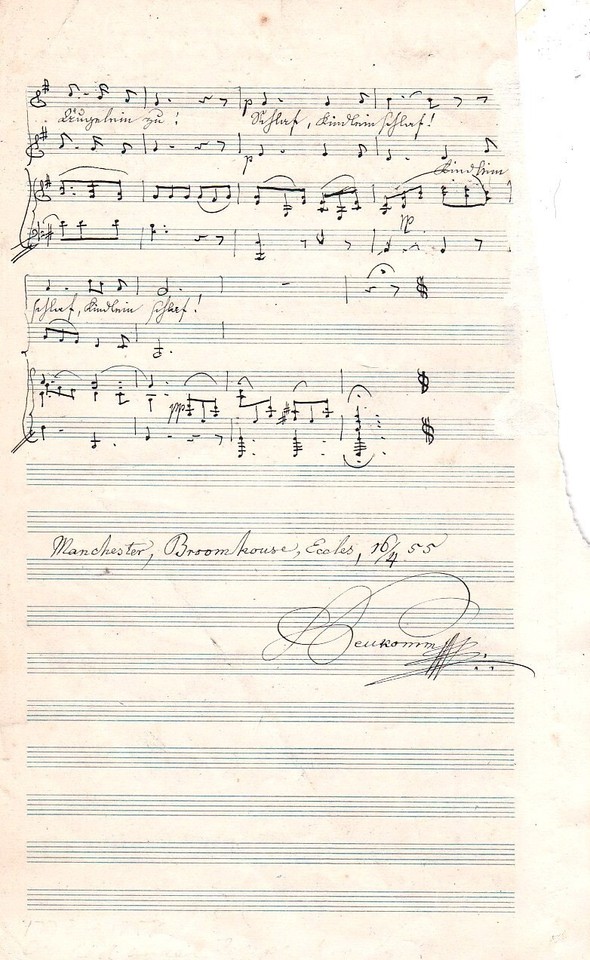 Äugelein zu! Schlaf, Kindlein schlaf!
p
p
Kindlein
pp
schlaf, Kindlein schlaf!
pp
Manchester, Broomhouse, Eccles, 16/4 55
Neukomm